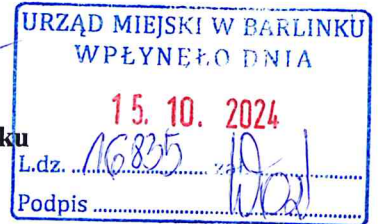 URZĄD MIEJSKI W BARLINKU
WPŁYNĘŁO DNIA
15. 10. 2024
ku
L.dz. 16835 zał.
Podpis